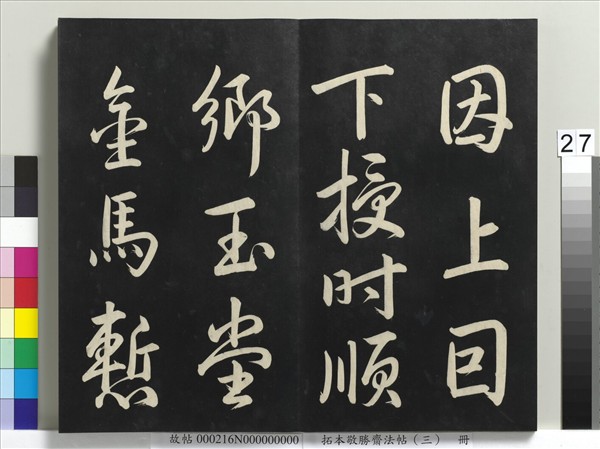 因上回
下授时順
鄉玉堂
金馬慙
27
故帖 000216N000000000 拓本敬勝齋法帖（三） 冊